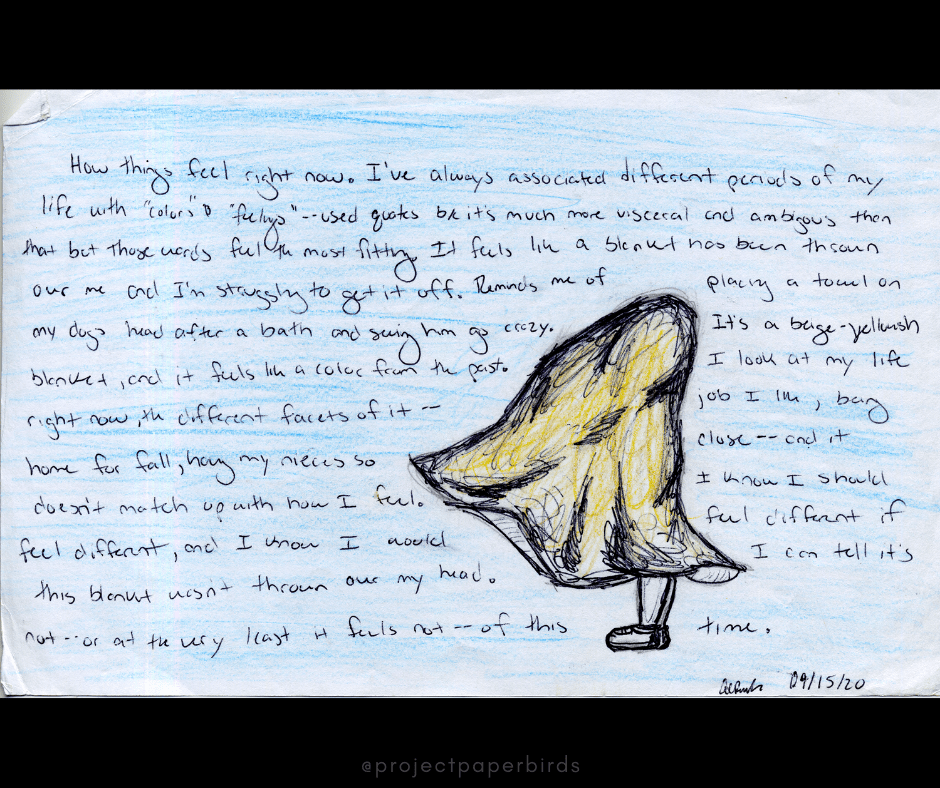 How things feel right now. I've always associated different periods of my
life with "colors" & "feelings" -- used quotes bc it's much more visceral and ambigous then
that but those words feel the most fitting. It feels like a blanket has been thrown
over me and I'm struggling to get it off. Reminds me of placing a towel on
my dogs head after a bath and seeing him go crazy. It's a beige-yellowish
blanket, and it feels like a color from the past. I look at my life
right now, the different facets of it -- job I like, being
home for fall, having my nieces so close -- and it
doesn't match up with how I feel. I know I should
feel different, and I know I would feel different if
this blanket wasn't thrown over my head. I can tell it's
not -- or at the very least it feels not -- of this time.
09/15/20
@projectpaperbirds